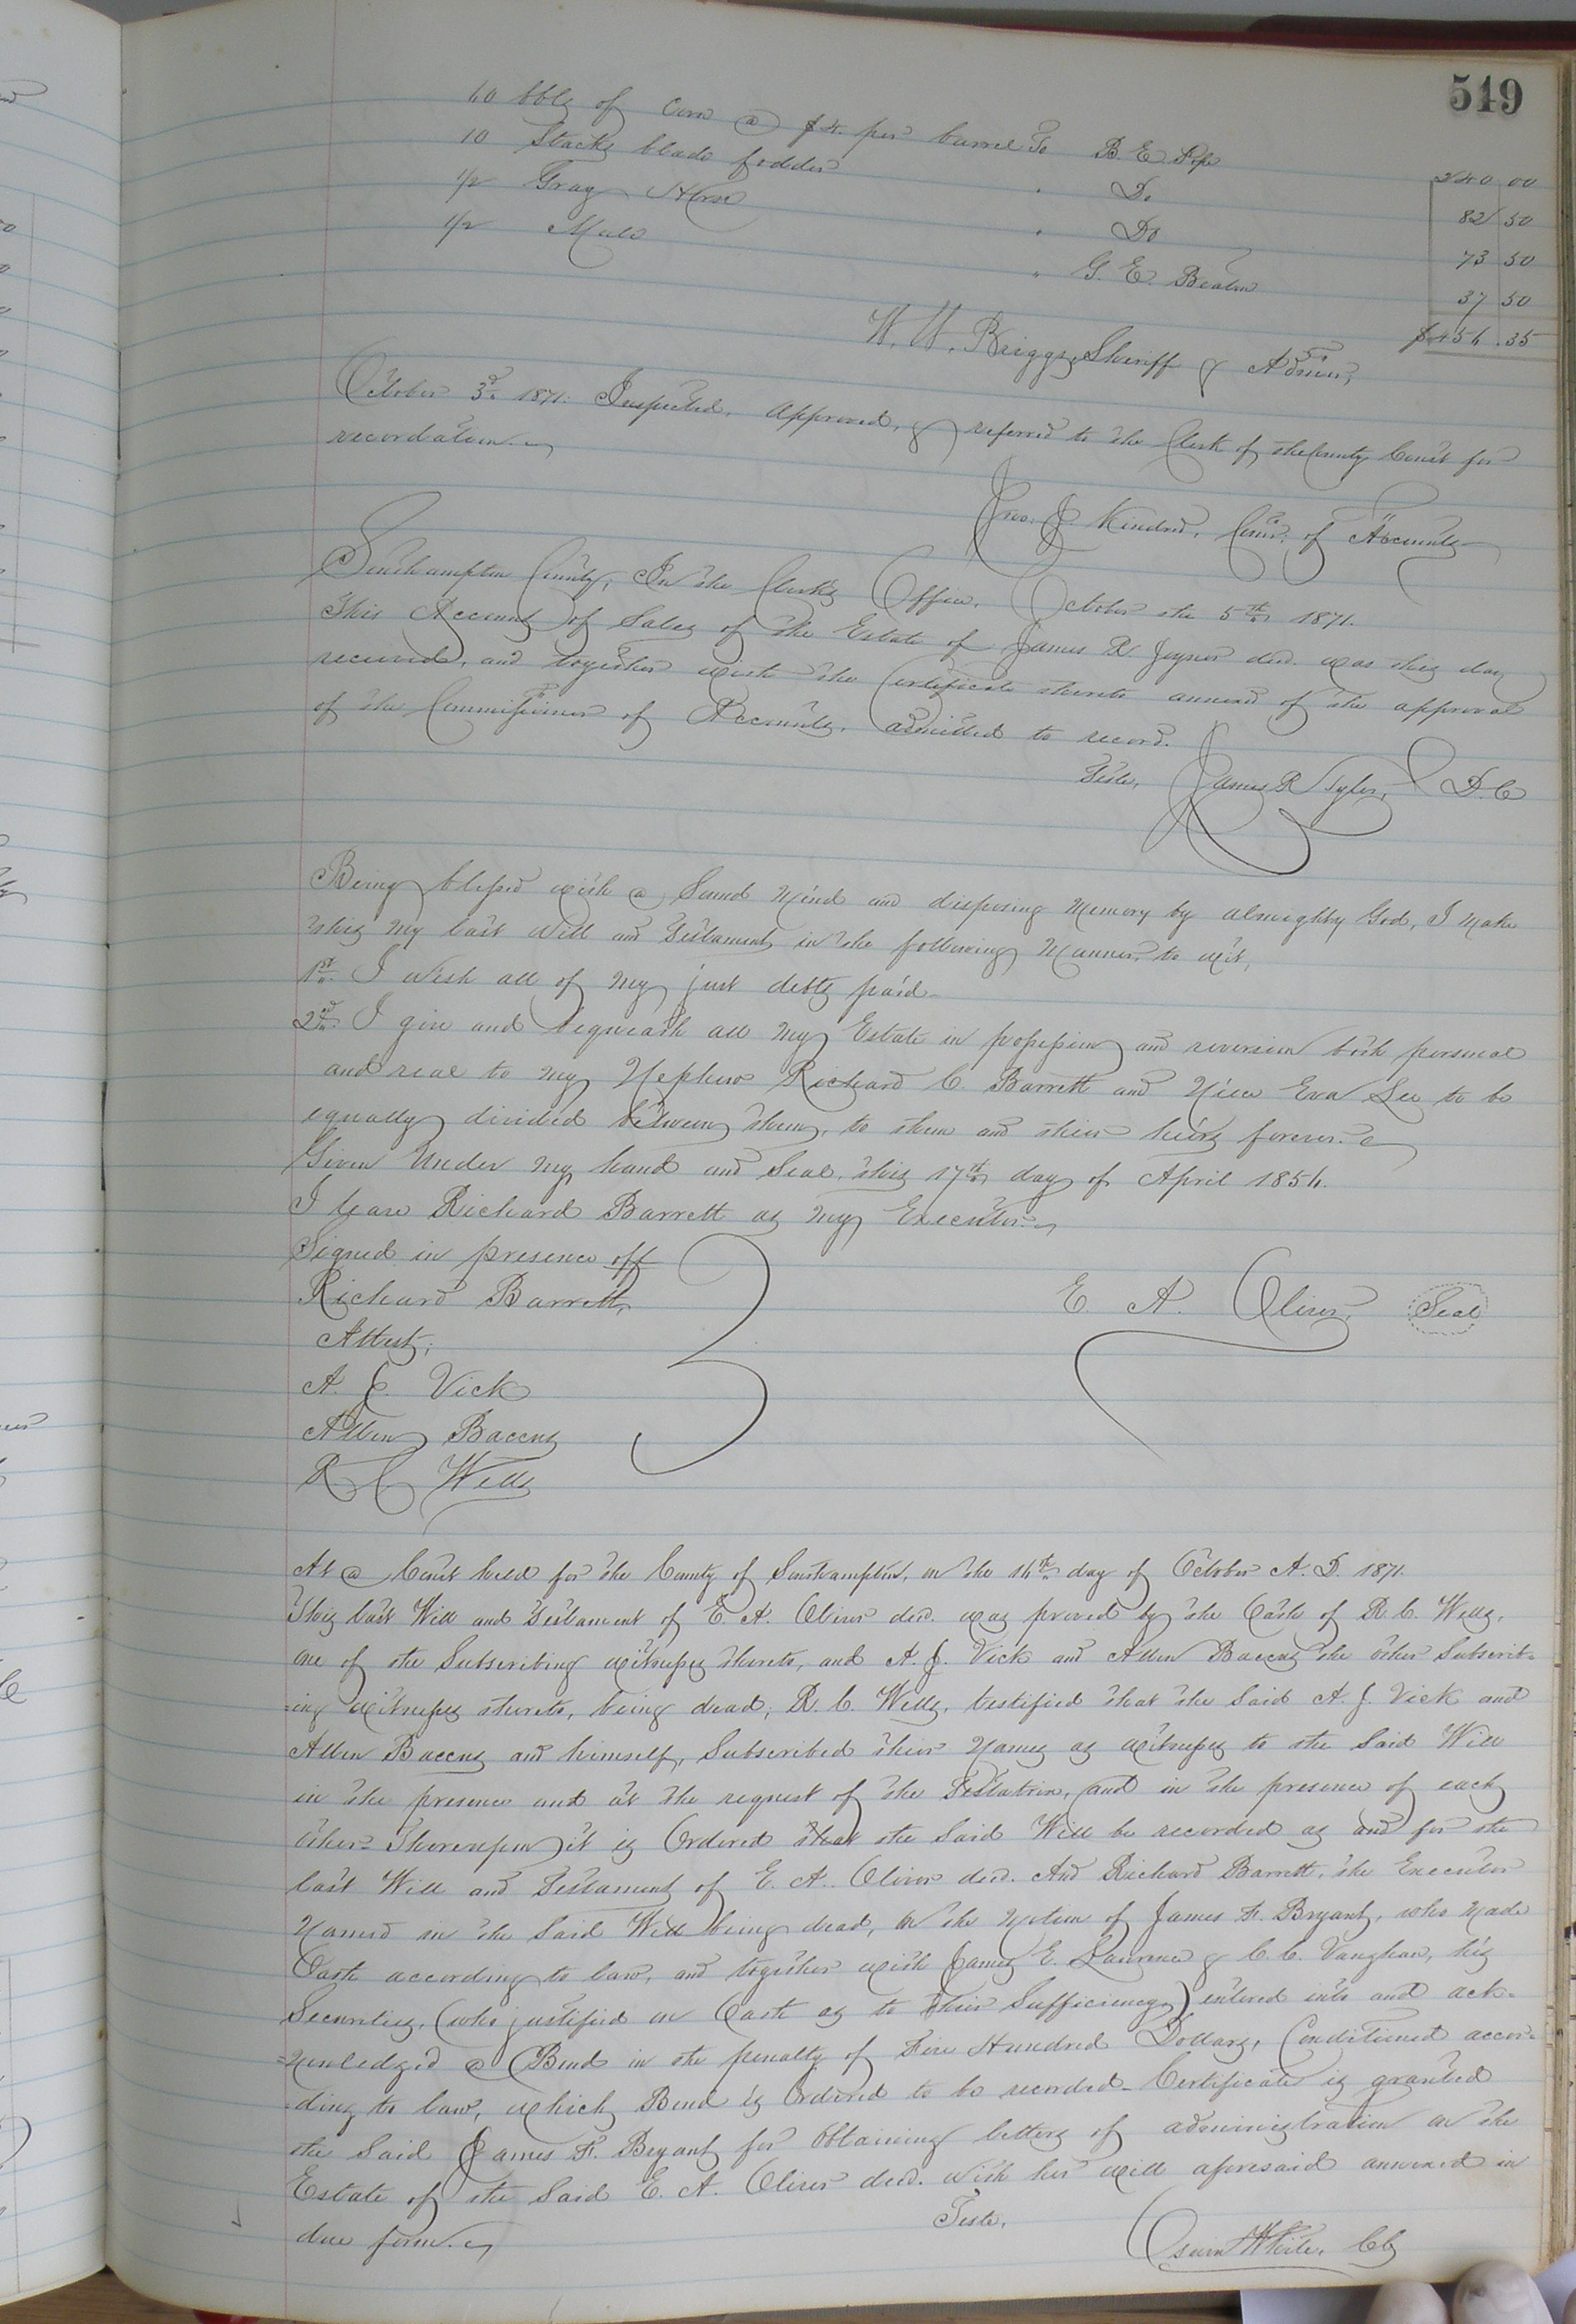 519
60 bbls of Corn @ $4. per barrel To B. E. Pope 240 00
10 Stacks blade fodder " Do 82 50
1/2 Gray Horse " Do 73 50
1/2 Mule " G. E. Beaton 37 50
W. W. Briggs, Sheriff & Admr,
October 3d. 1871. Inspected, approved, & referred to the Clerk of the County Court for
recordation.
Jno. J. Kindred, Comr. of Accounts
Southampton County, In the Clerks Office, October the 5th 1871.
This Account of Sales of the Estate of James R. Joyner decd. was this day
received, and together with the Certificate thereto annexed of the approval
of the Commissioner of Accounts, admitted to record.
Teste, James R Tyler, D.C
Being blessed with a Sound Mind and disposing Memory by almighty God, I make
this my last Will and Testament in the following Manner to wit,
1st. I wish all of my just debts paid.
2nd. I give and bequeath all my Estate in possession and reversion both personal
and real to my Nephew Richard C. Barrett and Niece Eva Lee to be
equally divided between them, to them and their heirs forever.
Given Under my hand and Seal, this 17th day of April 1854.
I leave Richard Barrett as my Executor.
Signed in presence off
Richard Barrett, E. A. Oliver, Seal
Attest,
A. J. Vick
Allen
R C Wills
At a Court held for the County of Southampton, on the 16th day of October A. D. 1871.
This last Will and Testament of E. A. Oliver decd. was proved by the Oath of R. C. Wills,
one of the Subscribing witnesses thereto, and A. J. Vick and Allen the other Subscrib-
-ing witnesses thereto, being dead; R. C. Wills, testified that the Said A. J. Vick and
Allen and himself, Subscribed their Names as witnesses to the Said Will
in the presence and at the request of the Testatrix, and in the presence of each
other. Thereupon it is Ordered that the Said Will be recorded as and for the
last Will and Testament of E. A. Oliver decd. And Richard Barrett, the Executor
Named in the Said Will being dead, On the Motion of James F. Bryant, who Made
Oath according to law, and together with James E. Lawrence & C. C. Vaughan, his
Securities, (who justified on Oath as to their Sufficiency) entered into and ack-
=nowledged a Bond in the penalty of Five Hundred Dollars, Conditioned accor-
-ding to law, which Bond is Ordered to be recorded. Certificate is granted
the Said James F. Bryant for obtaining letters of administration on the
Estate of the Said E. A. Oliver decd. with her will aforesaid annexed in
due form.
Teste,
White, Clk